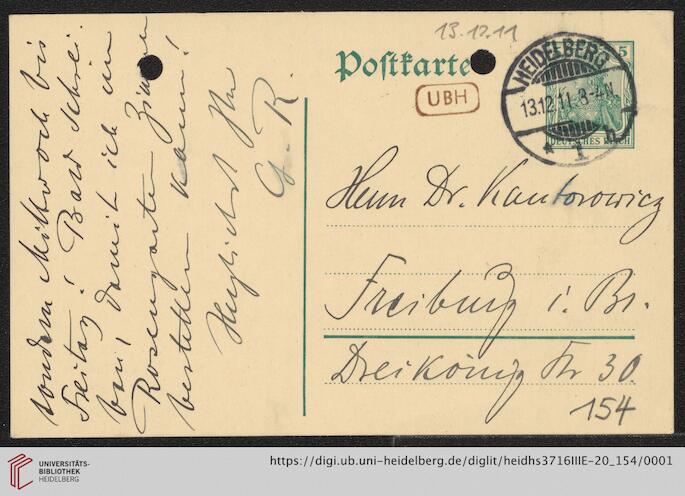 13.12.11
Postkarte
UBH
HEIDELBERG
13.12.11. 8-9N.
* 1 b.
5
DEUTSCHES REICH
sondern Mittwoch bis
Freitag! Bald schrei-
ben, damit ich im
Rosengarten Zimmer
bestellen kann!
Herzlichst Ihr
G. R.
Herrn Dr. Kantorowicz
Freiburg i. Br.
Dreikönig Str 30.
154
UNIVERSITÄTS-
BIBLIOTHEK
HEIDELBERG
https://digi.ub.uni-heidelberg.de/diglit/heidhs3716IIIE-20_154/0001